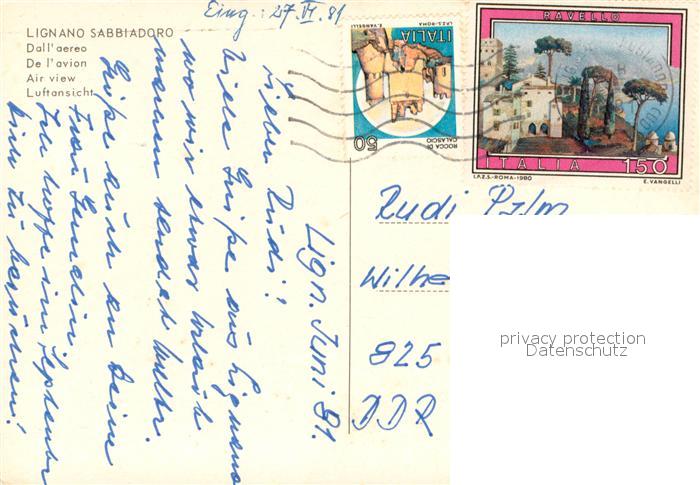 Eing: 27. VI. 81
LIGNANO SABBIADORO
Dall'aereo
De l'avion
Air view
Luftansicht
Lign. Juni 81.
Lieber Rudi!
Viele Grüße aus Lignano
wo wir etwas Urlaub
machen sendet Walter.
Grüße auch an Deine
Frau Gemahlin
Ich hoffe im September
Dich zu besuchen!
ITALIA
50
ROCCA DI
CALASCIO
I.P.Z.S.-ROMA
E. VANGELLI
RAVELLO
ITALIA 150
I.P.Z.S.-ROMA-1980
E. VANGELLI
Rudi
Wilhe
825
DDR
privacy protection
Datenschutz